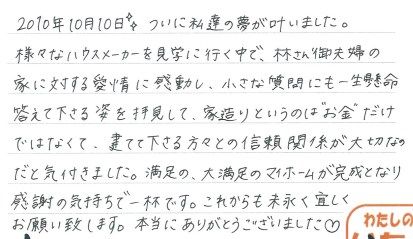 2010年10月10日✨ ついに私達の夢が叶いました。
様々なハウスメーカーを見学に行く中で、林さん御夫婦の
家に対する愛情に感動し、小さな質問にも一生懸命
答えて下さる姿を拝見して、家造りというのは“お金”だけ
ではなくて、建てて下さる方々との信頼関係が大切なの
だと気付きました。満足の、大満足のマイホームが完成となり
感謝の気持ちで一杯です。これからも末永く宜しく
お願い致します。本当にありがとうございました♡
わたしの